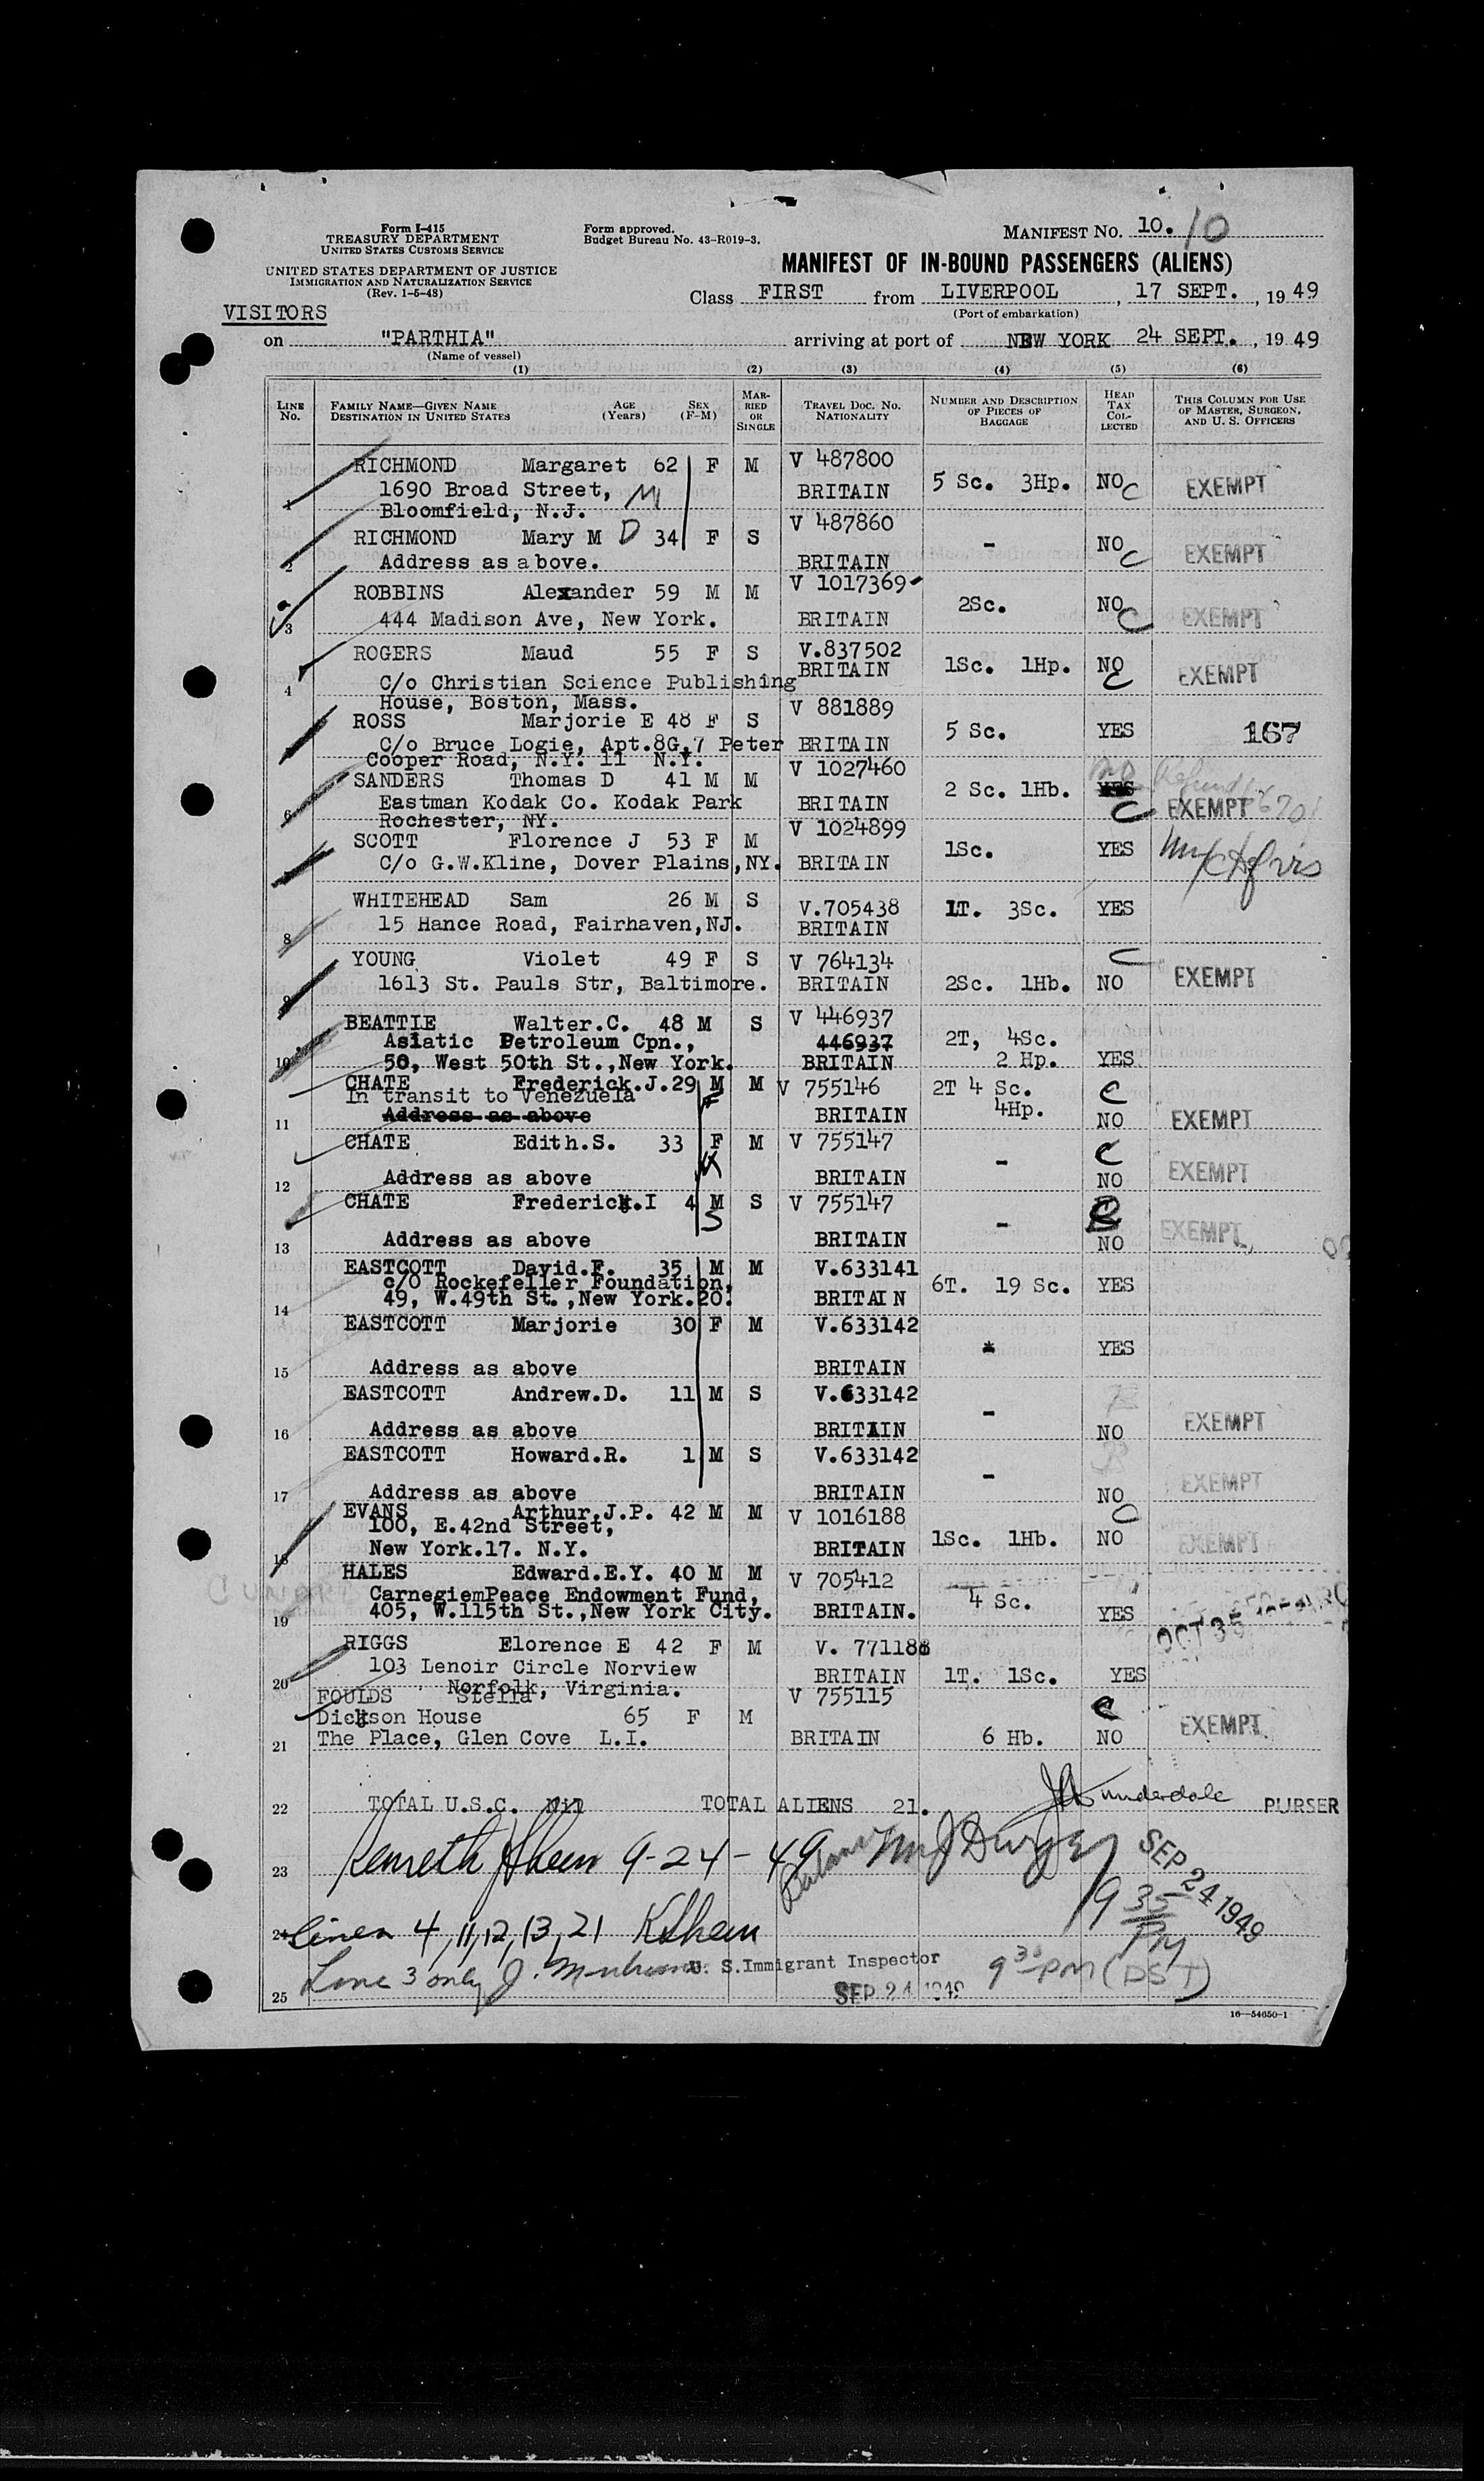 Form I-415
TREASURY DEPARTMENT
UNITED STATES CUSTOMS SERVICE
UNITED STATES DEPARTMENT OF JUSTICE
IMMIGRATION AND NATURALIZATION SERVICE
(Rev. 1-5-48)
Form approved.
Budget Bureau No. 43-R019-3.
MANIFEST NO. 10. 10
MANIFEST OF IN-BOUND PASSENGERS (ALIENS)
Class FIRST from LIVERPOOL, 17 SEPT., 1949
(Port of embarkation)
VISITORS
on "PARTHIA" arriving at port of NEW YORK 24 SEPT., 1949
(Name of vessel)
(1) (2) (3) (4) (5) (6)
LINE NO. FAMILY NAME—GIVEN NAME DESTINATION IN UNITED STATES AGE (Years) SEX (F-M) MARRIED OR SINGLE TRAVEL DOC. NO. NATIONALITY NUMBER AND DESCRIPTION OF PIECES OF BAGGAGE HEAD TAX COLLECTED THIS COLUMN FOR USE OF MASTER, SURGEON, AND U. S. OFFICERS
RICHMOND Margaret 62 F M V 487800
1690 Broad Street, M BRITAIN 5 Sc. 3Hp. NO C EXEMPT
1 Bloomfield, N.J.
RICHMOND Mary M D 34 F S V 487860
2 Address as above. BRITAIN - NO C EXEMPT
ROBBINS Alexander 59 M M V 1017369
3 444 Madison Ave, New York. BRITAIN 2Sc. NO C EXEMPT
ROGERS Maud 55 F S V.837502
BRITAIN 1Sc. 1Hp. NO C EXEMPT
4 C/o Christian Science Publishing
House, Boston, Mass.
ROSS Marjorie E 48 F S V 881889
C/o Bruce Logie, Apt.8G,7 Peter BRITAIN 5 Sc. YES 167
Cooper Road, N.Y. 11 N.Y.
SANDERS Thomas D 41 M M V 1027460
6 Eastman Kodak Co. Kodak Park BRITAIN 2 Sc. 1Hb. YES no C EXEMPT
Rochester, NY.
SCOTT Florence J 53 F M V 1024899
C/o G.W.Kline, Dover Plains,NY. BRITAIN 1Sc. YES
WHITEHEAD Sam 26 M S V.705438 1T. 3Sc. YES
8 15 Hance Road, Fairhaven,NJ. BRITAIN
YOUNG Violet 49 F S V 764134 C
9 1613 St. Pauls Str, Baltimore. BRITAIN 2Sc. 1Hb. NO EXEMPT
BEATTIE Walter.C. 48 M S V 446937
Asiatic Petroleum Cpn., 446937 2T, 4Sc.
10 50, West 50th St.,New York. BRITAIN 2 Hp. YES
CHATE Frederick.J.29 M M V 755146 2T 4 Sc. C
In transit to Venezuela
11 Address as above BRITAIN 4Hp. NO EXEMPT
CHATE Edith.S. 33 F M V 755147 C
12 Address as above BRITAIN - NO EXEMPT
CHATE Frederick.I 4 M S V 755147
13 Address as above BRITAIN - NO EXEMPT
EASTCOTT David.F. 35 M M V.633141
c/o Rockefeller Foundation, 6T. 19 Sc. YES
14 49, W.49th St.,New York.20. BRITAIN
EASTCOTT Marjorie 30 F M V.633142
15 Address as above BRITAIN * YES
EASTCOTT Andrew.D. 11 M S V.633142
16 Address as above BRITAIN - NO EXEMPT
EASTCOTT Howard.R. 1 M S V.633142
17 Address as above BRITAIN - NO EXEMPT
EVANS Arthur.J.P. 42 M M V 1016188 C
100, E.42nd Street,
18 New York.17. N.Y. BRITAIN 1Sc. 1Hb. NO EXEMPT
HALES Edward.E.Y. 40 M M V 705412
CarnegiemPeace Endowment Fund, 4 Sc.
19 405, W.115th St.,New York City. BRITAIN. YES
RIGGS Florence E 42 F M V. 771188
103 Lenoir Circle Norview BRITAIN 1T. 1Sc. YES
20 Norfolk, Virginia.
FOULDS Stella V 755115 C
Dickson House 65 F M EXEMPT
21 The Place, Glen Cove L.I. BRITAIN 6 Hb. NO
22 TOTAL U.S.C. Nil TOTAL ALIENS 21. PURSER
23 Kenneth 9-24-49
SEP 24 1949
9 35 PM
24 Lines 4,11,12,13,21
Line 3 only J.
U. S. Immigrant Inspector
SEP 24 1949
9 30 PM (DST)
25
16—54650-1